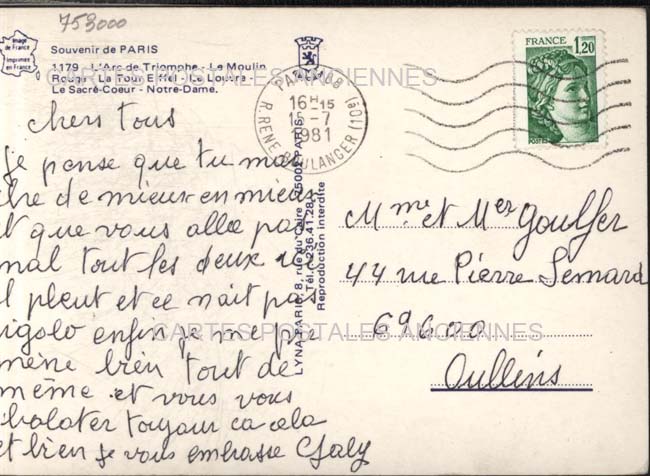 753000
Image
de France
Imprimée
en France
Souvenir de PARIS
1179 - L'Arc de Triomphe - Le Moulin
Rouge - La Tour Eiffel - Le Louvre -
Le Sacré-Coeur - Notre-Dame.
PARIS 108
16H15
15-7
1981
R. RENE BOULANGER (10e)
FRANCE
1,20
POSTES
CARTES POSTALES ANCIENNES
chers tous
je pense que tu mar
che de mieux en mieux
et que vous alle pas
mal tout les deux ici
il pleut et ce nait pas
rigolo enfin je me pro
mène bien tout de
même et vous vous
balater toujour ca cela
et bien je vous embrasse Galy
LYNA-PARIS, 8, rue du Caire 75002 PARIS
Tél. : 236.41.28
Reproduction interdite
Mme et Mer Goulfer
44 rue Pierre Semard
69600
Oullins
CARTES POSTALES ANCIENNES